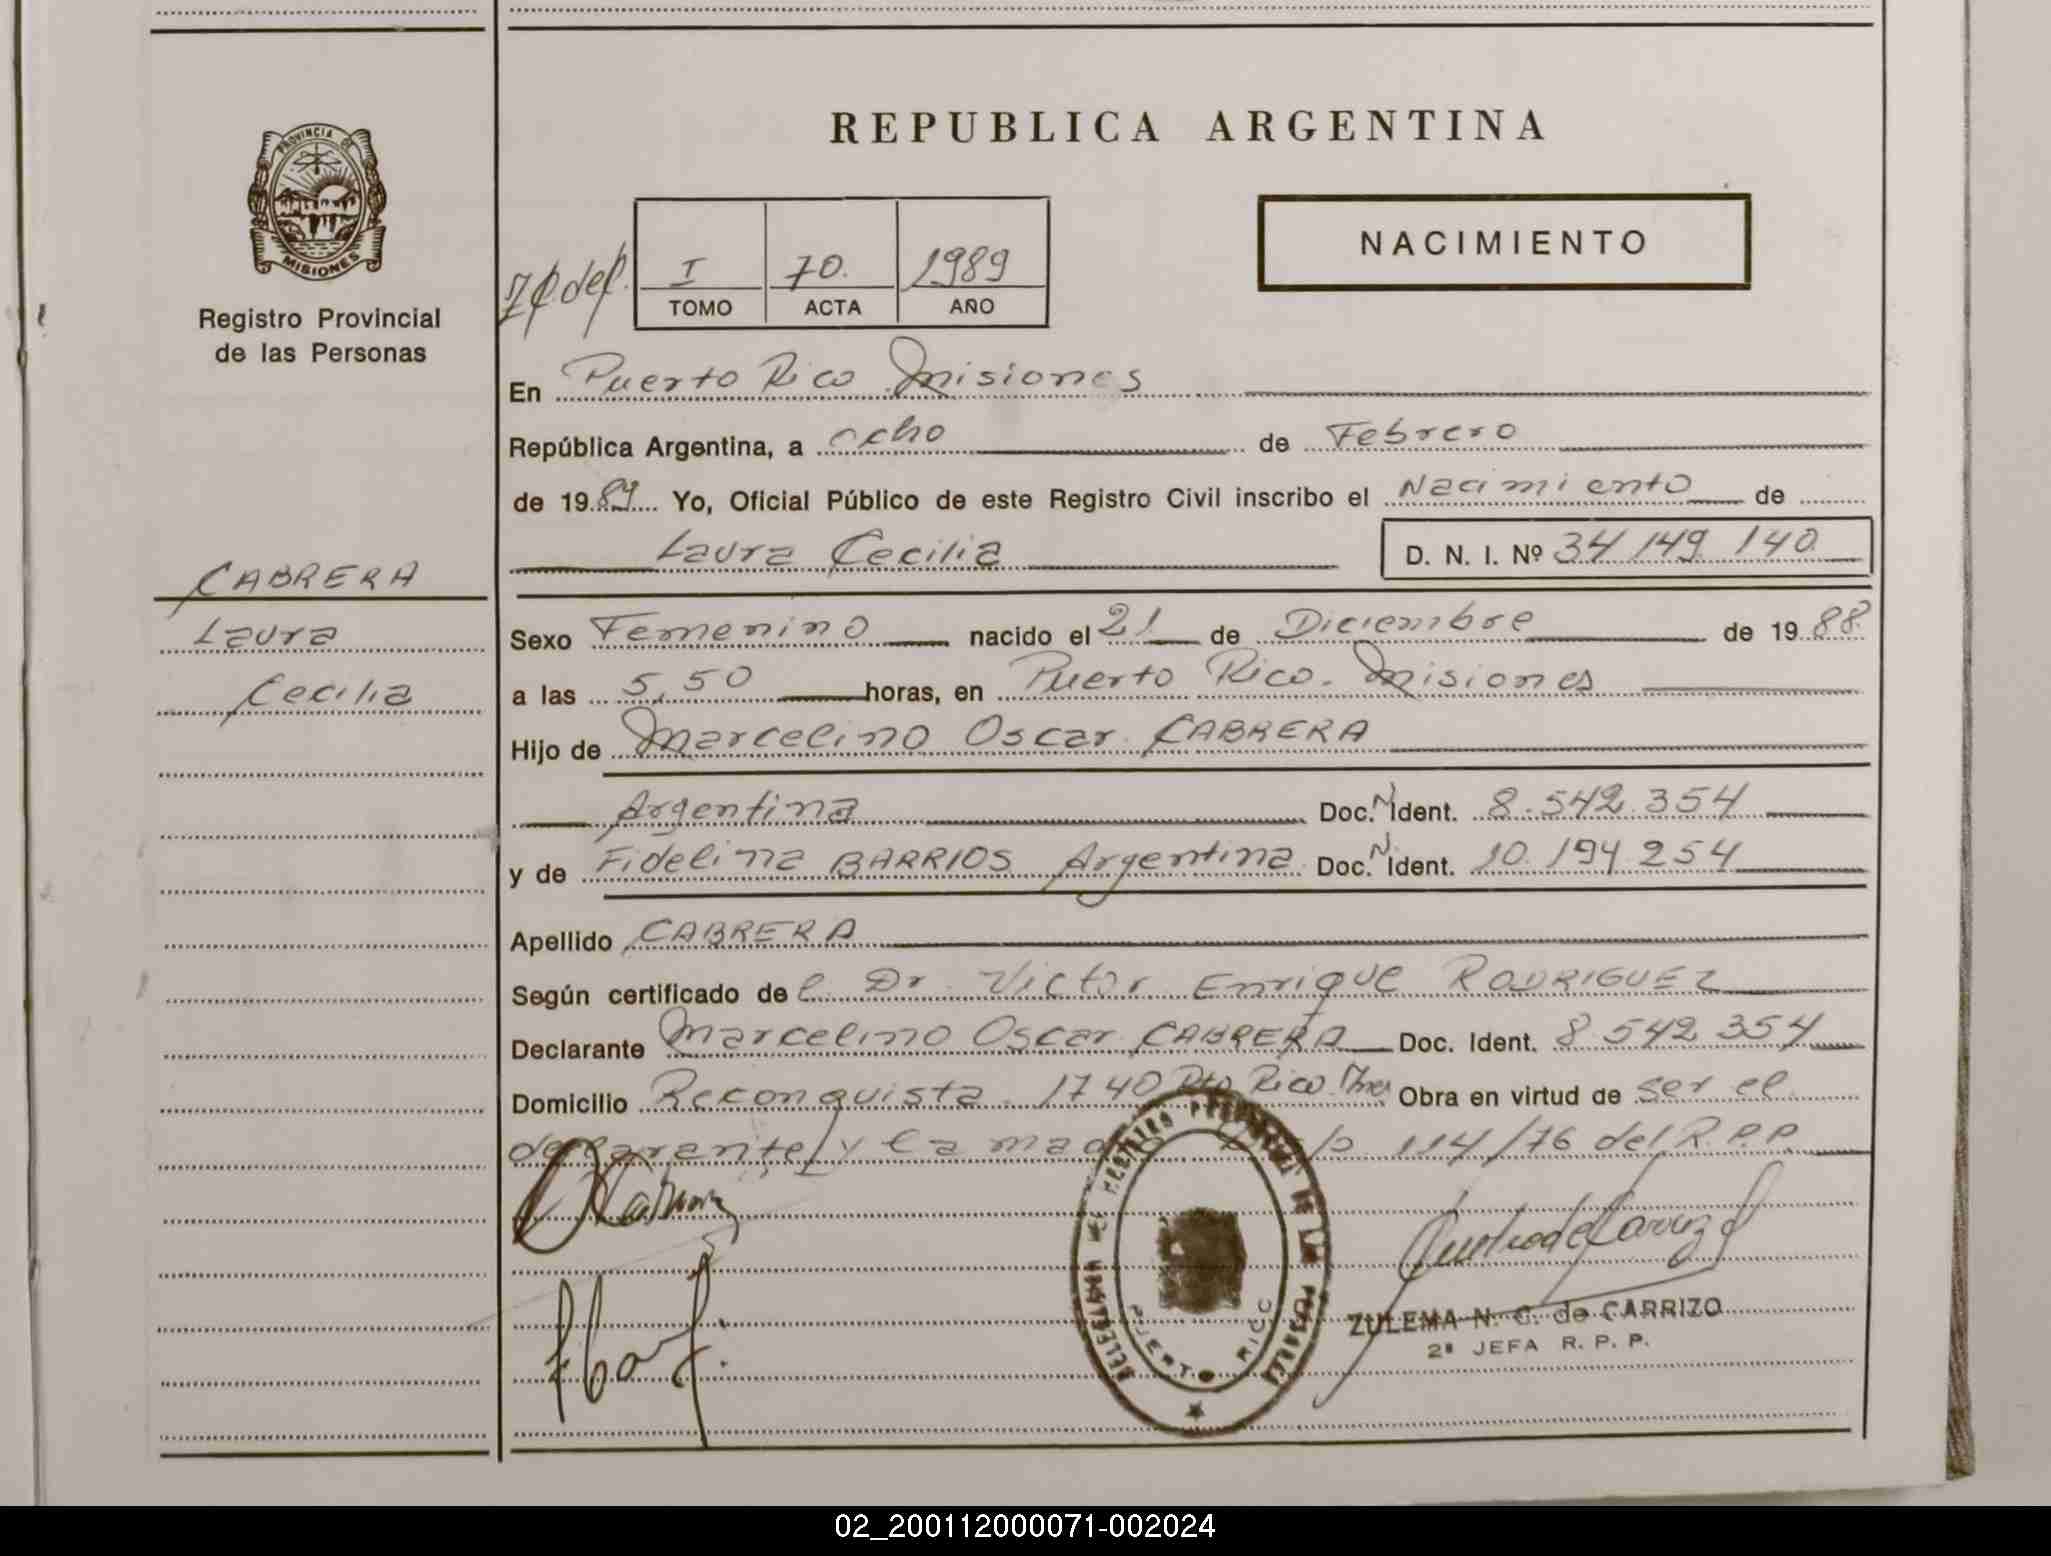 REPUBLICA ARGENTINA
PROVINCIA DE
MISIONES
Registro Provincial
de las Personas
I 70. 1989
TOMO ACTA AÑO
NACIMIENTO
En Puerto Rico Misiones
República Argentina, a ocho de Febrero
de 1989 Yo, Oficial Público de este Registro Civil inscribo el Nacimiento de
Laura Cecilia D. N. I. Nº 34 149 140
CABRERA
Laura
Cecilia
Sexo Femenino nacido el 21 de Diciembre de 1988
a las 5,50 horas, en Puerto Rico. Misiones
Hijo de Marcelino Oscar CABRERA
Argentina Doc. N. Ident. 8.542.354
y de Fidelina BARRIOS Argentina. Doc. N. Ident. 10.194.254
Apellido CABRERA
Según certificado del Dr. Victor Enrique RODRIGUEZ
Declarante Marcelino Oscar CABRERA Doc. Ident. 8 542 354
Domicilio Reconquista 1740 Pto Rico Mnes Obra en virtud de ser el
declarante y la madre 114/76 del R.P.P.
DELEGACION DEL REGISTRO PROVINCIAL DE LAS PERSONAS
PUERTO RICO
ZULEMA N. C. de CARRIZO
2ª JEFA R. P. P.
02_200112000071-002024